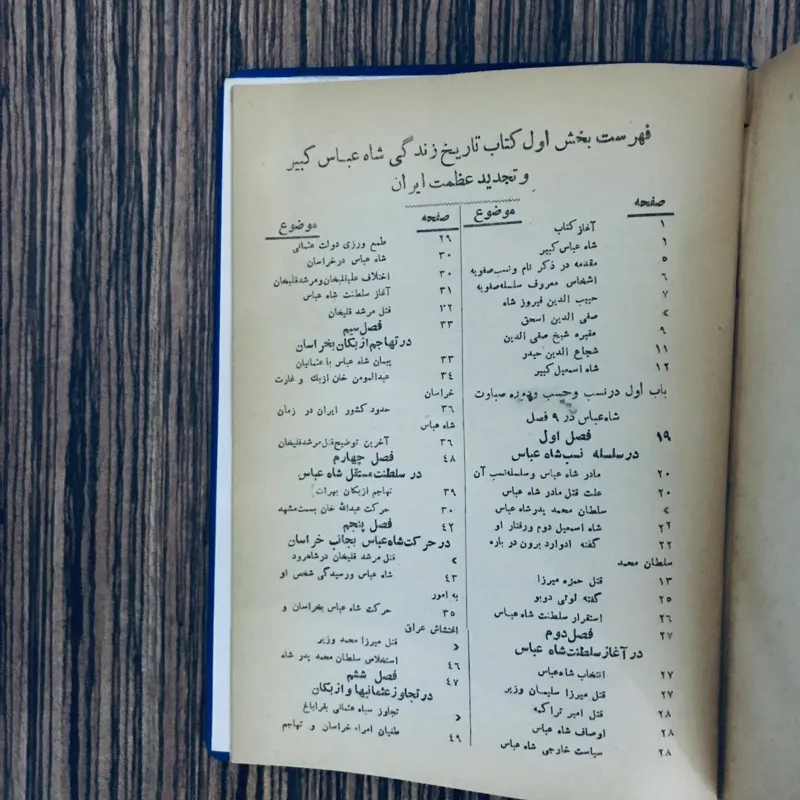 فهرست بخش اول کتاب تاریخ زندگی شاه عباس کبیر
و تجدید عظمت ایران
صفحه موضوع
۱ آغاز کتاب
۱ شاه عباس کبیر
۵ مقدمه در ذکر نام و نسب صفویه
۶ اشخاص معروف سلسله صفویه
۷ حبیب الدین فیروز شاه
» صفی الدین اسحق
۹ مقبره شیخ صفی الدین
۱۱ شجاع الدین حیدر
۱۲ شاه اسمعیل کبیر
باب اول در نسب و حسب و دوره صباوت
شاه عباس در ۹ فصل
۱۹ فصل اول
در سلسله نسب شاه عباس
۲۰ مادر شاه عباس و سلسله نسب آن
۲۰ علت قتل مادر شاه عباس
» سلطان محمد پدر شاه عباس
۲۲ شاه اسمعیل دوم و رفتار او
۲۲ گفته ادوارد برون در باره
سلطان محمد
۱۳ قتل حمزه میرزا
۲۵ گفته لوئی دوبو
۲۶ استقرار سلطنت شاه عباس
۲۷ فصل دوم
در آغاز سلطنت شاه عباس
۲۷ انتخاب شاه عباس
۲۷ قتل میرزا سلیمان وزیر
۲۸ قتل امیر تراکمه
۲۸ اوصاف شاه عباس
۲۸ سیاست خارجی شاه عباس
صفحه موضوع
۲۹ طمع ورزی دولت عثمانی
۳۰ شاه عباس در خراسان
۳۰ اختلاف علیقلیخان و مرشد قلیخان
۳۱ آغاز سلطنت شاه عباس
۳۲ قتل مرشد قلیخان
۳۳ فصل سیم
در تهاجم ازبکان بخراسان
۳۳ پیمان شاه عباس با عثمانیان
۳۴ عبدالمومن خان ازبک و غارت
خراسان
۳۶ حدود کشور ایران در زمان
شاه عباس
۳۶ آخرین توضیح قتل مرشد قلیخان
۴۸ فصل چهارم
در سلطنت مستقل شاه عباس
۳۹ تهاجم ازبکان بهرات
۳۰ حرکت عبدالله خان بسمت مشهد
۴۲ فصل پنجم
در حرکت شاه عباس بجانب خراسان
» قتل مرشد قلیخان در شاهرود
۴۳ شاه عباس و رسیدگی شخص او
به امور
۳۵ حرکت شاه عباس بخراسان و
اغتشاش عراق
» قتل میرزا محمد وزیر
۴۶ استخلاص سلطان محمد پدر شاه
۴۷ فصل ششم
در تجاوز عثمانیها و ازبکان
» تجاوز سپاه عثمانی بقراباغ
۴۹ طغیان امراء خراسان و تهاجم